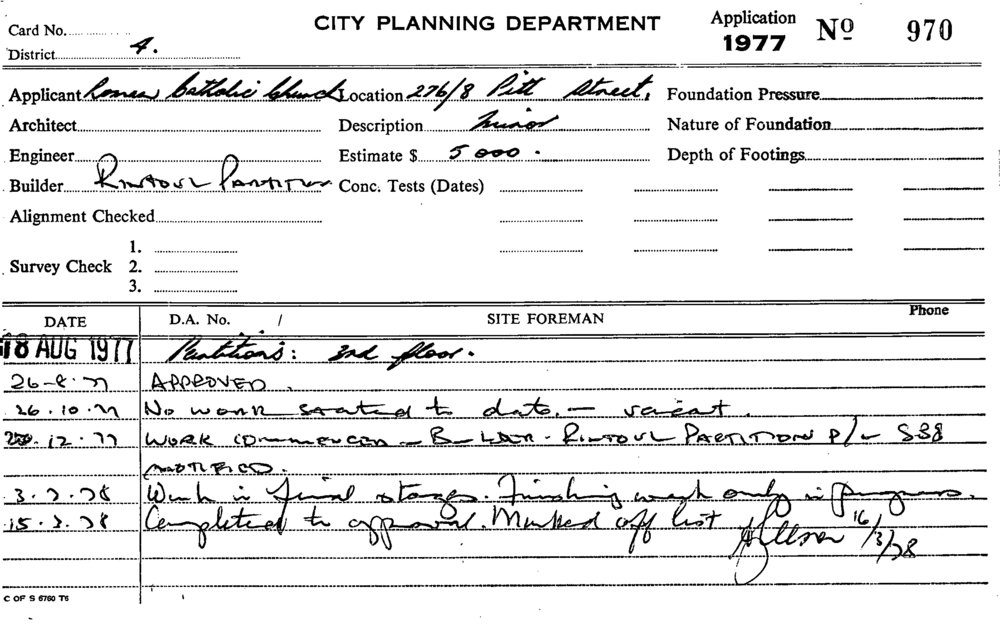 CITY PLANNING DEPARTMENT
Application
1977 Nº 970
Card No.
District 4.
Applicant Roman Catholic Church Location 276/8 Pitt Street, Foundation Pressure
Architect Description Minor Nature of Foundation
Engineer Estimate $ 5 000. Depth of Footings
Builder RINTOUL PARTITION Conc. Tests (Dates)
Alignment Checked
1.
Survey Check 2.
3.
DATE D.A. No. / SITE FOREMAN Phone
18 AUG 1977 Partitions: 3rd floor.
26-8.77 APPROVED.
26.10.77 No work started to date. - vacant.
.12.77 WORK COMMENCED - BUILDER - RINTOUL PARTITION P/L S38
NOTIFIED.
3.2.78 Work in final stages. Finishing work only in progress.
15.3.78 Completed to approval. Marked off list
16/3/78
C OF S 6760 T6